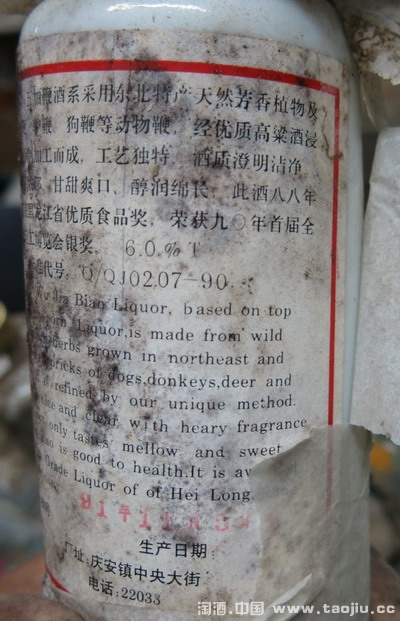 鞭酒系采用东北特产天然芳香植物及
鞭、狗鞭等动物鞭，经优质高粱酒浸
加工而成，工艺独特，酒质澄明洁净
甘甜爽口、醇润绵长，此酒八八年
龙江省优质食品奖，荣获九〇年首届全
博览会银奖。6.0.% T
代号：Q/QJ02.07-90
Jia Bian Liquor, based on top
Liquor,is made from wild
herbs grown in northeast and
pricks of dogs,donkeys,deer and
is refined by our unique method.
and clear with heary fragrance
only tastes mellow and sweet
also is good to health.It is aw
Grade Liquor of of Hei Long
91年11
生产日期：
厂址：庆安镇中央大街
电话：22035
淘酒.中国 www.taojiu.cc